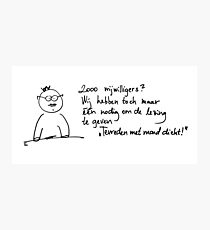 2000 vrijwilligers?
Wij hebben toch maar
één nodig om de lezing
te geven
„Tevreden met mond dicht!"